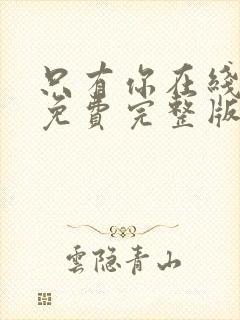 只有你在线
免費完整版
雲隐青山